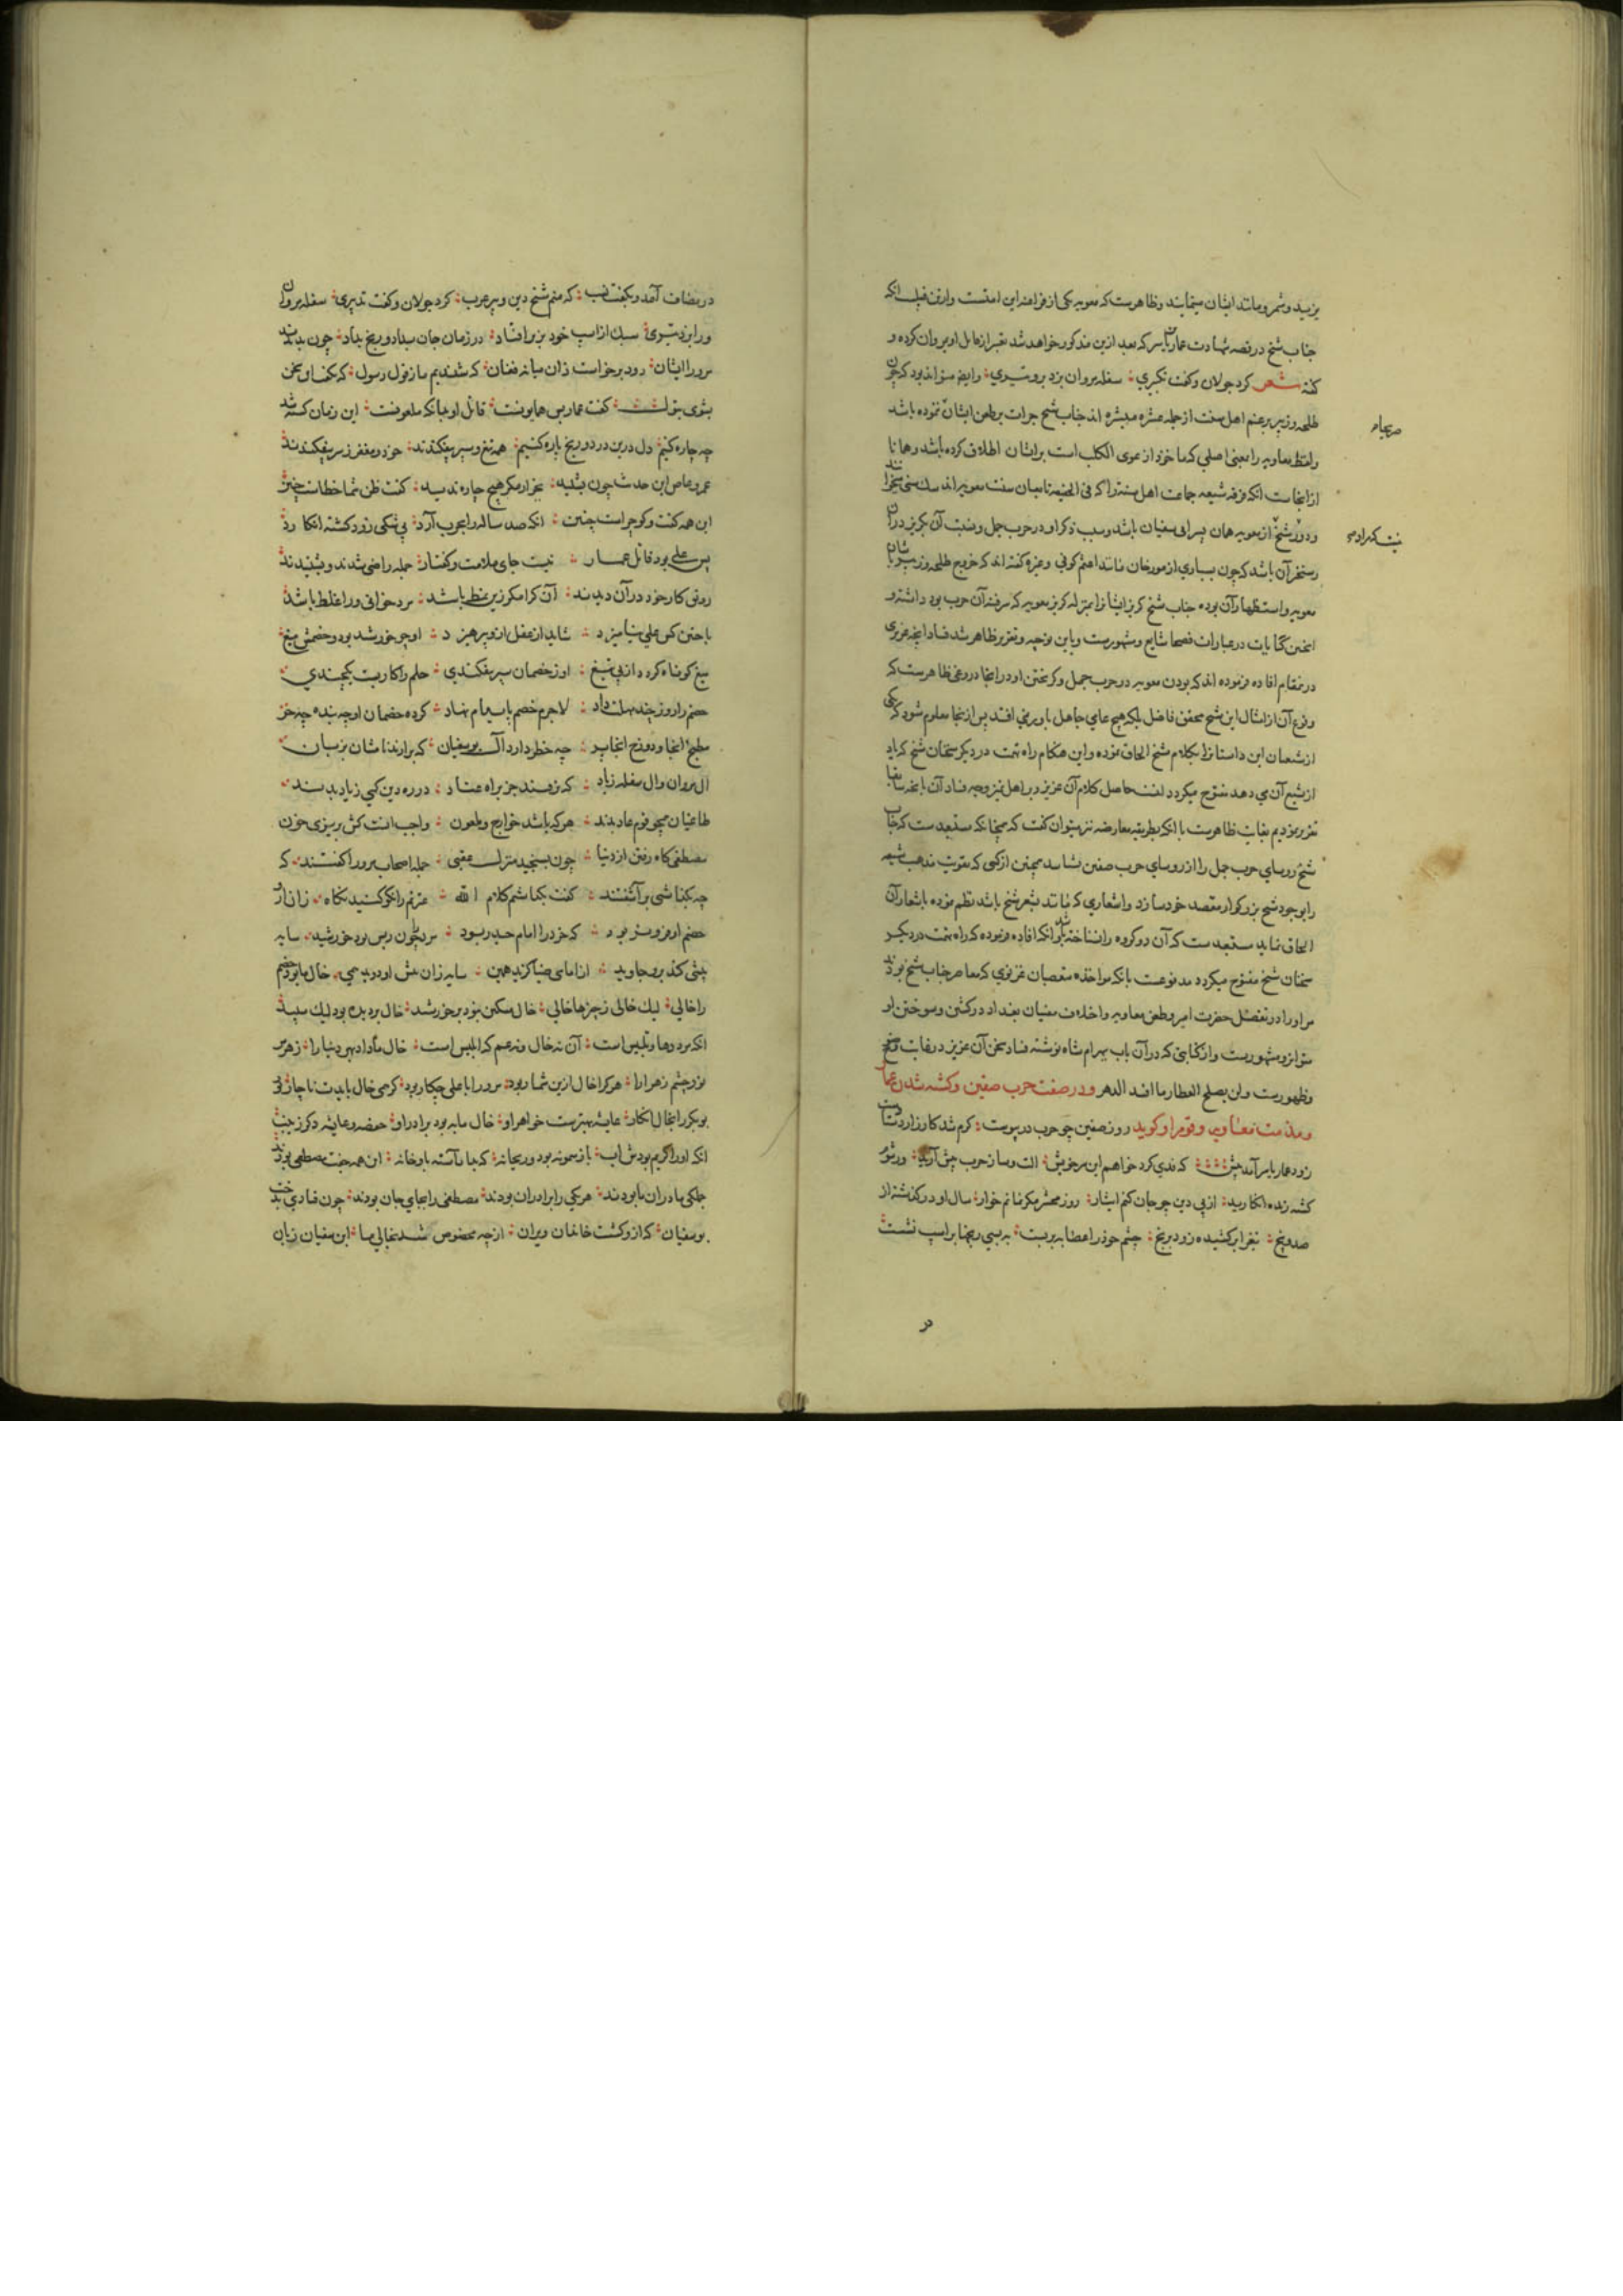 یزید و شمر و مانند ایشان مینمایند و ظاهرست که معویه یکی از فراعنه این امتست و ازین قبیل است انکه
جناب شیخ در قصه شهادت عمار یاسر که بعد ازین مذکور خواهد شد تعبیر از قاتل او بمروان کرده و
گفته شعر کرد جولان و گفت تکبیری سفله مروان بزد برو تیری و ایضا میتواند بود که چون
طلحه و زبیر بزعم اهل سنت از جمله عشره مبشره اند جناب شیخ جرات بر طعن ایشان ننموده باشد
و لفظ معاویه را بمعنی اصلی که ماخوذ از عوی الکلب است بر ایشان اطلاق کرده باشد و همانا
از اینجاست انکه فرقه شیعه جماعت اهل سنت را که فی الحقیقه تابعان سنت معویه اند سگ سنی میخوانند
و مراد شیخ از معویه همان پسر ابی سفیان باشد و سبب ذکر او در حرب جمل و نسبت آن گریز در ان
رستخیز آن باشد که چون بسیاری از مورخان مانند اعثم کوفی و غیره گفته اند که خروج طلحه و زبیر
معویه و استظهار آن بوده جناب شیخ گریز ایشان را بمنزله گریز معویه که سرفتنه آن حرب بود داشته و
اینچنین کنایات در عبارات فصحا شایع و مشهورست و باین توجیه و تقریر ظاهر شد فساد آنچه عزیزی
درین مقام افاده فرموده اند که بودن معویه در حرب جمل و گریختن او در انجا دروغی ظاهرست که
وقوع آن از امثال این شیخ محقق فاضل بلکه هیچ عامی جاهل باور نمی افتد پس از اینجا معلوم شود که یکی
از شیعان این داستان را بکلام شیخ الحاق نموده و این هنگام راه تهمت در دیگر سخنان شیخ که یاد
از تشیع آن می دهد مفتوح میگردد انتهی حاصل کلام آن عزیز و بر اهل تمیز وجه فساد آن با آنچه سابقا
تقریر نمودیم بغایت ظاهرست با انکه بطریق معارضه نیز میتوان گفت که همچنانکه مستبعدست که جناب
شیخ روسای حرب جمل را از روسای حرب صفین نشناسد همچنین از کسی که تقویت مذهب شیعه
را بوجود شیخ بزرگوار مقصد خود سازد و اشعاری که مانند شعر شیخ باشد نظم نموده باشعار آن
الحاق نماید مستبعدست که آن دو گروه را نشناخته باشد و آنکه افاده فرموده که راه تهمت در دیگر
سخنان شیخ مفتوح میگردد مدفوعست بانکه مواخذه متعصبان غزنوی که معاصر جناب شیخ بودند
مر او را در تفضیل حضرت امیر و طعن معاویه و اختلاف مفتیان بغداد در کشتن و سوختن او
متواتر و مشهورست و از کتابتی که در آن باب بهرام شاه نوشته فساد سخن آن عزیز در غایت وضوح
و ظهورست و لن یصلح العطار ما افسد الدهر و در صفت حرب صفین و کشته شدن عمار
و مذمت معاویه و قوم او گوید روز صفین چو حرب در پیوست گرم شد کارزار
زود عمار یاسر آمد پیش که فدی کرد خواهم این سر خویش الت و ساز حرب پیش آرید
کشته زنده انگارید از پی دین چو جان کنم ایثار روز محشر مگر نمانم خوار سال او در گذشته از
صد و پنج تیغ را برکشیده زود برنج چشم خود را عصابه بربست به سپی بر اسپ نشست
در
در مصاف آمد و بگفت نسب که منم شیخ دین و پیر عرب کرد جولان و گفت تدبیری سفله مروان
ورا بزد تیری سبک از اسپ خود بزیر افتاد در زمان جان بداد و رنج نداد چون بدیدند
مرورا ایشان زود برخواست زان میانه فغان که شنیدیم ما ز قول رسول که گفت او سخن
بشوی بتول گفت عمار بس همایونست قاتل او بدانکه ملعونست این زمان کشته شد
چه چاره کنیم دل درین درد و رنج پاره کنیم همه تیغ و سپر بیفکندند خود و مغفر ز سر بیفکندند
عمرو عاص این حدیث چون بشنید بجز از مکر هیچ چاره ندید گفت ظن شما خطاست چنین
این همه گفت و گو چراست چنین انکه صد ساله را بحرب آرد بی شکی زود کشته انگارد
پس علی بود قاتل عمار نیست جای ملامت و گفتار جمله راضی شدند و بشنیدند
رونق کار خود در آن دیدند آن کرا مکر زین نمط باشد مرد خوانی ورا غلط باشد
با چنین کس علی نیامیزد شاید از عقل ازو بپرهیزد او چو خورشید بود و خصمش میغ
میغ کوتاه کردد از پی تیغ او ز خصمان سپر بیفکندی حلم را کار بست یکچندی
خصم را روز چند مهلت داد لاجرم خصم پای بیام نهاد کرده خصمان او چه بنده چه حر
مطبخ انجا و دوزخ اینجا پر چه خطر دارد آل بوسفیان که برارند نامشان بزبان
ال مروان وال سفله زیاد که نرفتند جز براه عناد در ره دین کمی زیاد بدیدند
طاغیان همچو قوم عاد بدند هر که باشد خوارج و ملعون واجب انست کش بریزی خون
مصطفی گاه رفتن از دنیا چون بسیجید منزل عقبی جمله اصحاب مرورا گفتند که
چه بگذاشتی برآشفتند گفت بگذاشتم کلام الله عترتم را نکو کنید نگاه زان از
خصم او فروتر بود که خرد را امام حیدر بود مرد چون رس بود خورشید سایه
پیشی کند برو جاوید از امامی ضیا گزید همین سایه زان پیش او دوید همی خال ما بود خصم
را خالی لیک خالی ز چیزها خالی خال مسکین نبود بر خورشید خال بر دیده بود لیک سپید
انکه مرد دها و تلبیس است آن نه خال و نه عم که ابلیس است خال ما داد بهر دنیا را زهر مر
نور چشم زهرا را هر کرا خال ازین شمار بود مرورا با علی چکار بود گر همی خال بایدت ناچار
بوبکر را بخال انگار عایشه بهترست خواهر او خال ما به بود برادر او حفصه و عایشه دگر زینب
انکه او را کریم بودش اب باز سمونه بود و ریحانه که بیاراسته باو خانه این همه جفت مصطفی بودند
جملگی مادران ما بودند هر یکی را برادران بودند مصطفی را بجای جان بودند چون فتادی بدخت
بوسفیان که ازو گشت خانمان ویران از چه مخصوص شد بخالی ما ابن سفیان زیان